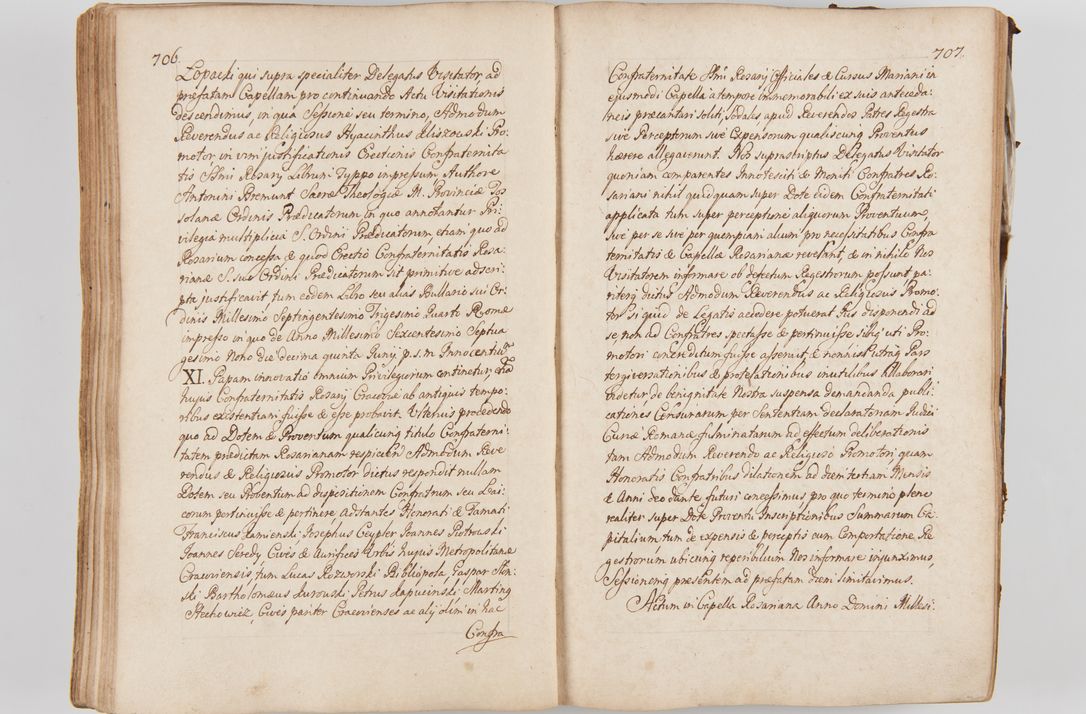 706.
Łopacki qui supra specialiter Delegatus Visitator, ad
præfatam Capellam pro continuando Actu Visitationis
descendimus, in qua Sessione seu termino, Admodum
Reverendus ac Religiosus Hyacinthus Kliszowski Pro:
motor, in vim justificationis Erectionis Confraternita
tis SSmi Rosarij Librum Typpo impressum Authore
Antonini Bremunt Sacræ Theologiæ M. Provinciæ Tos
solanæ Ordinis Prædicatorum, in quo annotantur Pri:
vilegia multiplicia S. Ordini Prædicatorum, etiam quo ad
Rosarium concessa & quod Erectio Confraternitatis Rosa:
rianæ S. suo Ordini Prædicatorum sit primitive adscri:
pta justificavit, tum eodem Libro seu alias Bullario sui Or:
dinis Millesimo Septingentesimo Trigesimo Quarto Romæ
impresso in quo de Anno Millesimo Sexcentesimo Septua
gesimo Nono die decima quinta Junij p. s. m. Innocentiu
XI. Papam innovatio omnium Privilegiorum continetur, etia
hujus Confraternitatis Rosarij Cracoviæ ab antiquis tempo:
ribus existentiam fuisse & esse probavit. Ulterius procedendo
quo ad Dotem & Proventum qualicunq titulo Confraterni:
tatem prædictam Rosarianam respicien Admodum Reve
rendus & Religiosus Promotor dictus respondit nullam
Dotem seu Proventum ad dispositionem Confratrum seu Lai:
corum pertinuisse & pertinere adstante Honorati & Famati
Franciscus Kamienski Josephus Ceypler Joannes Piotrowski
Joannes Seredy Cives & Aurifices Urbis hujus Metropolitanæ
Cracoviensis, tum Lucas Rozworski Bibliopola, Gaspar
ski Bartholomæus Kurowski Petrus Kapucinski Marting
Stechowicz, Cives pariter Cracovienses ac alij olim in hac
Confra
707.
Confraternitate SSmi Rosarij Officiales & Cursus Mariani in
ejusmodi Capella a tempore immemorabili ex suis anteceda:
neis præcantari soliti, Sodales, apud Reverendos Patres Regestra
sive Perceptorum sive Expensorum qualiscunq Proventus
hærere allegaverunt. Nos suprascriptus Delegatus Visitator
quoniam comparentes Innotesciti & Moniti Confratres Ro:
sariani nihil quidquam super Dote eidem Confraternitati
applicata tum super perceptione aliquorum Proventuum,
sive per se sive per quempiam alium pro necessitatibus Confra
ternitatis & Capellæ Rosarianæ revelant, & in nihilo Nos
Visitatorem informare ob defectum Regestrorum possunt, pa:
riterq dictus Admodum Reverendus ac Religiosus Promo:
tor si quid de Legatis accedere potuerat Jus disponendi ad
se, non ad Confratres spectasse & pertinuisse, sibiq uti Pro:
motori concreditum fuisse asseruit, & nonnisi utraq Pars
tergiversationibus & protelationibus inutilibus allaborari
videtur, de benignitate Nostra suspensa demandanda publi:
catione Censurarum per Sententiam declaratoriam Judicii
Curiæ Romanæ fulminatarum ad effectum deliberationis
tam Admodum Reverendo ac Religioso Promotori quam
Honoratis Confratribus dilationem ad diem tertiam Mensis
& Anni deo dante futuri concessimus, pro quo termino plene
realiter super Dote Proventu Inscriptionibus Summarum Ca:
pitalium tum de expensis & perceptis cum Comportatione Re
gestrorum ubicunq reperibilium Nos informare injunximus,
Sessionemq præsentem ad præfatam diem limitavimus.
Actum in Capella Rosariana Anno Domini Millesi: